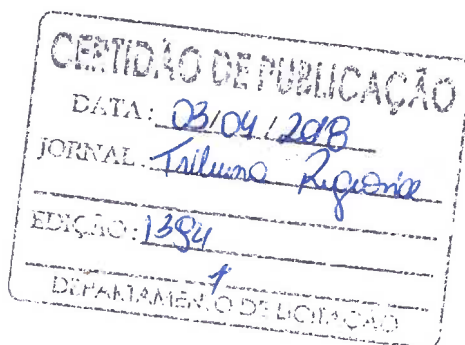 CERTIDÃO DE PUBLICAÇÃO
DATA: 03/04/2018
JORNAL: Tribuna Regional
EDIÇÃO: 1394
DEPARTAMENTO DE LICITAÇÃO